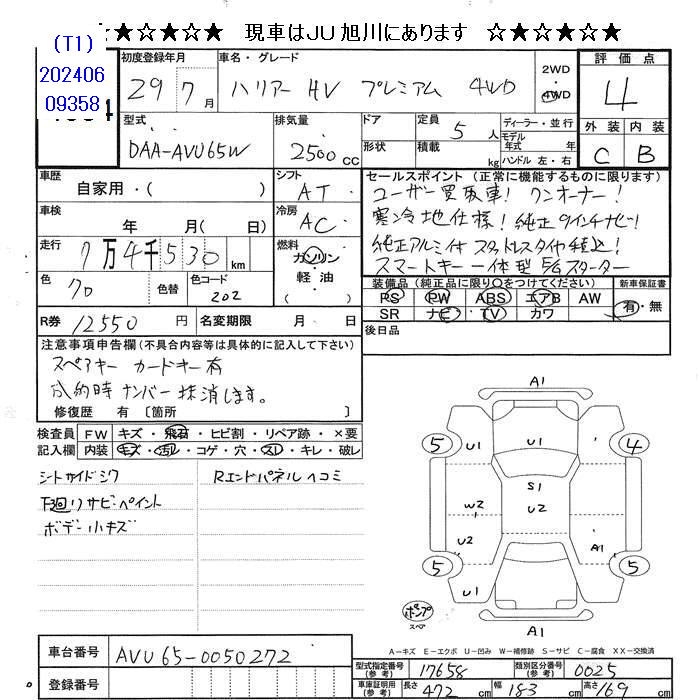 ★☆★☆★☆ 現車はJU旭川にあります ☆★☆★☆★
(T1)
202406
09358
初度登録年月
29 7月
車名・グレード
ハリアー HV プレミアム 4WD
2WD
・
4WD
評価点
4
型式
DAA-AVU65W
排気量
2500cc
ドア
形状
定員 5人
積載 kg
ディーラー・並行
モデル年式 年式
ハンドル 左・右
外装 内装
C B
車歴
自家用・( )
シフト
AT
車検
年 月( 日)
冷房
AC
走行
7万4千530km
燃料
ガソリン
軽油
( )
色
クロ
色替
色コード
202
R券 12550円
名変期限 月 日
セールスポイント(正常に機能するものに限ります)
ユーザー買取車!ワンオーナー!
寒冷地仕様!純正9インチナビ!
純正アルミ付スタッドレスタイヤ積込!
スマートキー一体型E/Gスターター
装備品(純正品に限り○をつけてください)
PS PW ABS エアB AW
SR ナビ TV カワ
新車保証書
有・無
後日品
注意事項申告欄(不具合内容等は具体的に記入して下さい)
スペアキー カードキー有
成約時ナンバー抹消します。
修復歴 有〔箇所 〕
検査員記入欄
FW キズ・飛石・ヒビ割・リペア跡・×要
内装 キズ・汚レ・コゲ・穴・スレ・キレ・破レ
シートサイドシワ
下廻リサビ・ペイント
ボデー小キズ
Rエンドパネルヘコミ
A1
5 U1 U1 4
S1
W2 U2
U2 A1
5 U1 5
ポンプ
スペア
A1
A-キズ E-エクボ U-凹み W-補修跡 S-サビ C-腐食 XX-交換済
車台番号 AVU65-0050272
登録番号
型式指定番号(参考) 17658
類別区分番号(参考) 0025
車庫証明用(参考) 長さ 472cm 幅 183cm 高さ 169cm